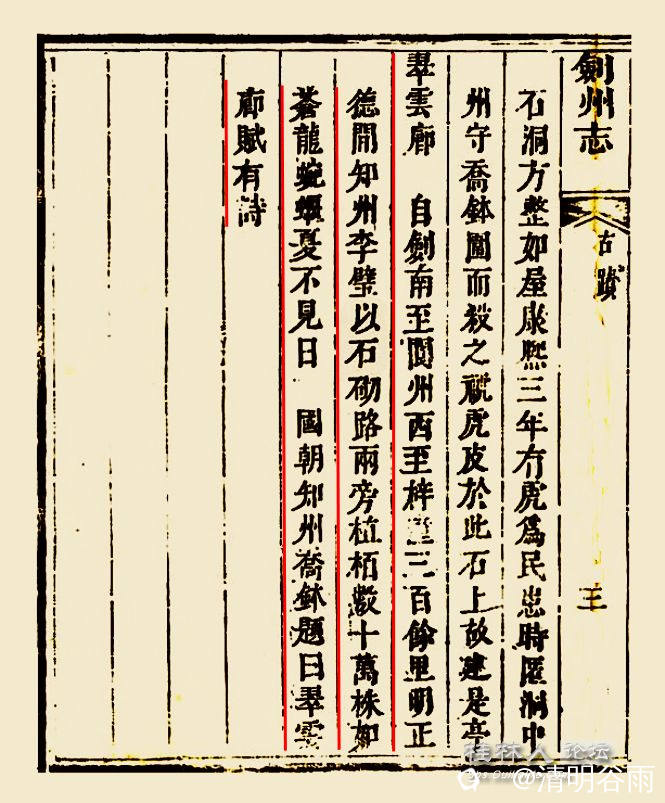 劍州志
古蹟
三
石洞方整如屋康熙三年有虎爲民患時匿洞中
州守喬鉢圍而殺之視虎皮於此石上故建是亭
翠雲廊 自劍南至閬州西至梓潼三百餘里明正
德間知州李璧以石砌路兩旁植栢數十萬株如
蒼龍蜿蜒夏不見日 國朝知州喬鉢題曰翠雲
廊賦有詩
桂林人论坛
@清明谷雨